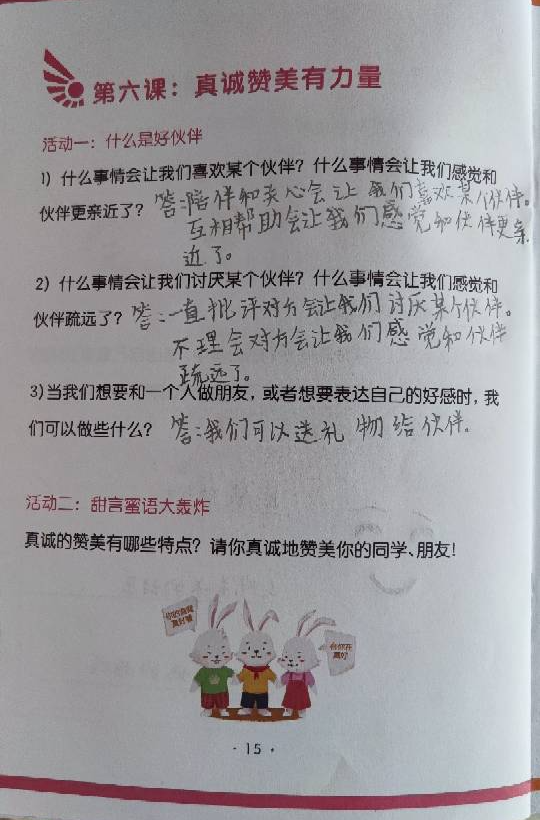 第六课：真诚赞美有力量
活动一：什么是好伙伴
1）什么事情会让我们喜欢某个伙伴？什么事情会让我们感觉和
伙伴更亲近了？答：陪伴和关心会让我们喜欢某个伙伴。
互相帮助会让我们感觉和伙伴更亲
近了。
2）什么事情会让我们讨厌某个伙伴？什么事情会让我们感觉和
伙伴疏远了？答：一直批评对方会让我们讨厌某个伙伴。
不理会对方会让我们感觉和伙伴
疏远了。
3)当我们想要和一个人做朋友，或者想要表达自己的好感时，我
们可以做些什么？答：我们可以送礼物给伙伴。
活动二：甜言蜜语大轰炸
真诚的赞美有哪些特点？请你真诚地赞美你的同学、朋友！
有你在
真好
· 15 ·